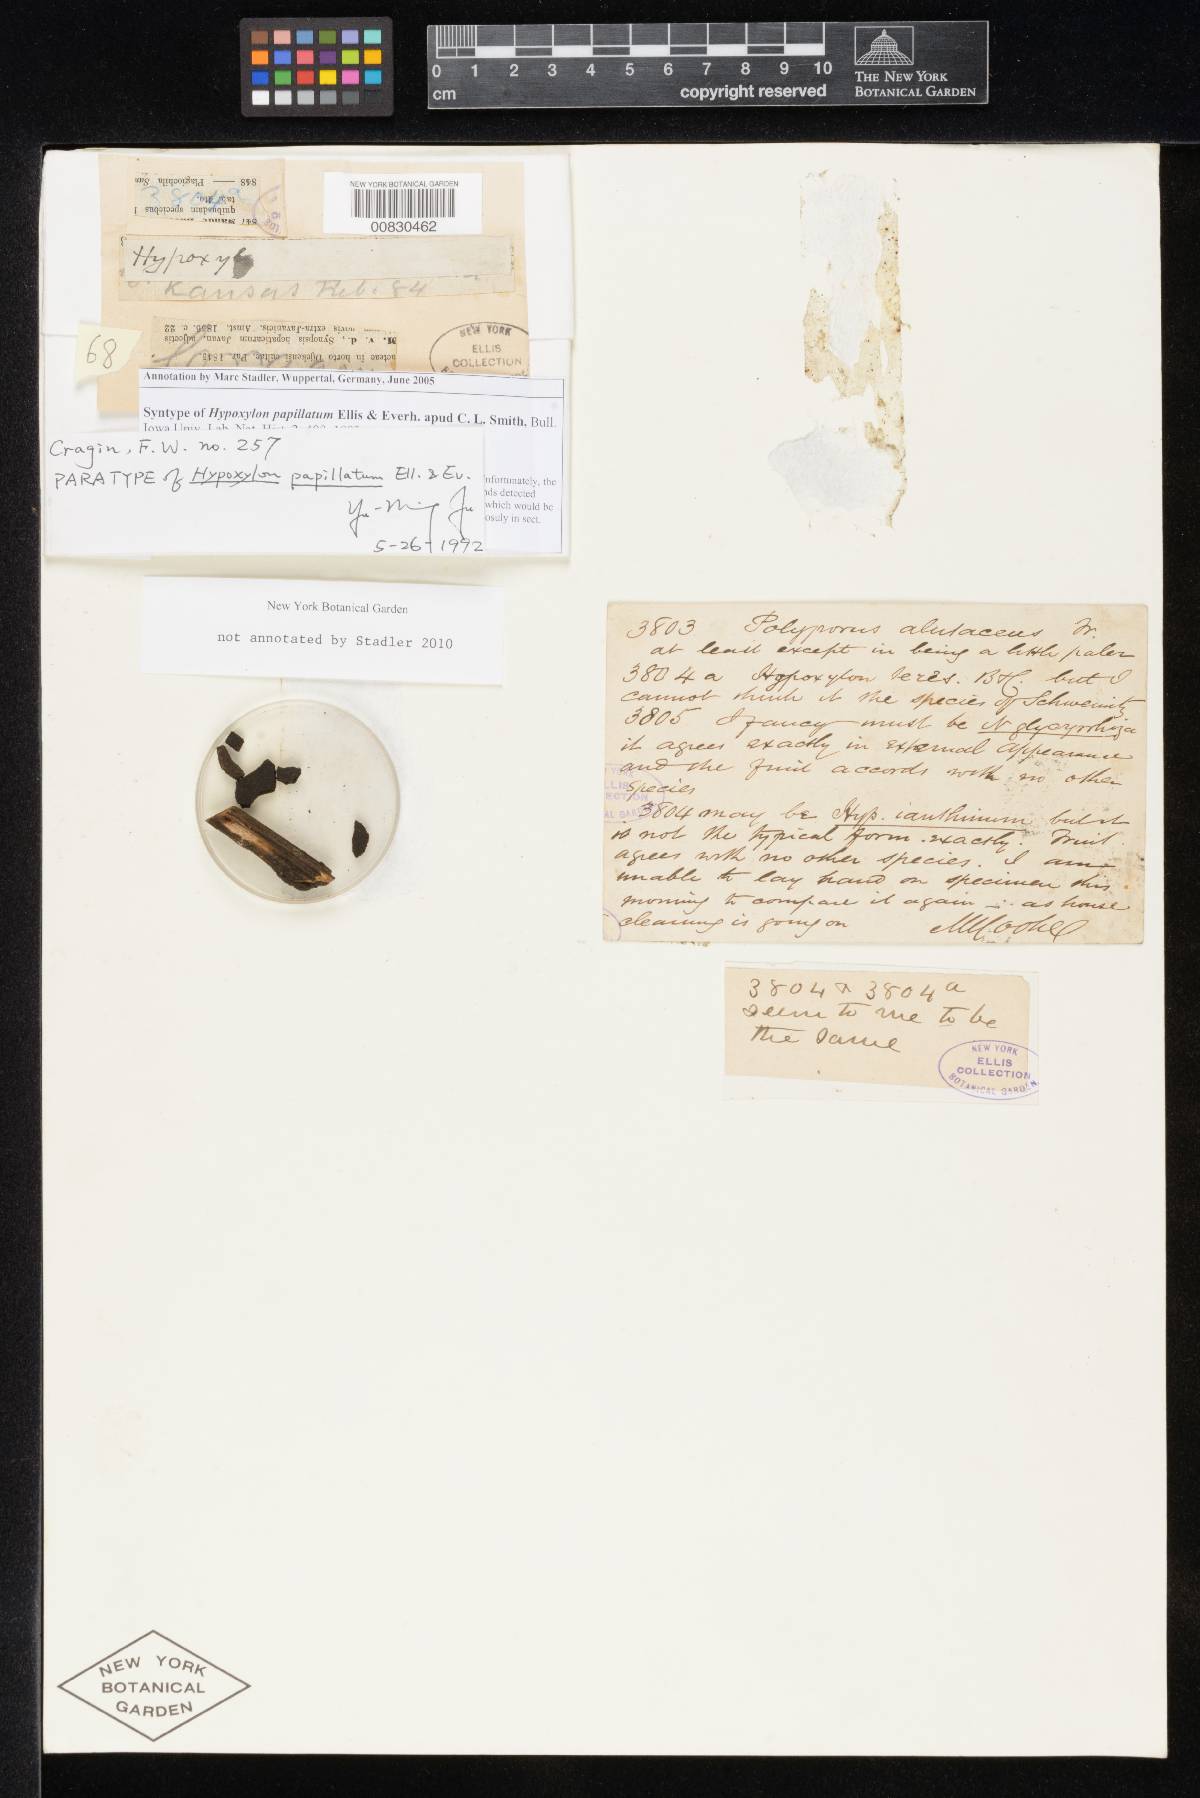 0 1 2 3 4 5 6 7 8 9 10
cm
copyright reserved
THE NEW YORK
BOTANICAL GARDEN
848 — Plagiochila San
38049
tab. ito.
quibusdam speciebus
NEW YORK BOTANICAL GARDEN
00830462
Hypoxyl
Kansas Feb. 84
novis extra-Javanicis, Amst. 1856. c. 22
M. v. d., Synopsis hepaticarum Javan. adjectis
acteae in horto Djekensi cultae, Par. 1845
NEW YORK
ELLIS
COLLECTION
68
Annotation by Marc Stadler, Wuppertal, Germany, June 2005
Syntype of Hypoxylon papillatum Ellis & Everh. apud C. L. Smith, Bull.
Iowa Univ. Lab. Nat. Hist.
nfortunately, the
nds detected
which would be
osuly in sect.
Cragin, F. W. no. 257
PARATYPE of Hypoxylon papillatum Ell. & Ev.
Yu-Ming Ju
5-26-1992
New York Botanical Garden
not annotated by Stadler 2010
3803 Polyporus alutaceus Fr.
at least except in being a little paler
3804 a Hypoxylon teres. but I
cannot think it the species of Schweinitz
3805 I fancy must be N glycyrrhiza
it agrees exactly in external appearance
and the fruit accords with no other
species
3804 may be Hyp. ianthinum but it
is not the typical form exactly. Fruit
agrees with no other species. I am
unable to lay hand on specimen this
morning to compare it again — as house
cleaning is going on MCCooke
3804 & 3804 a
seem to me to be
the same
NEW YORK
ELLIS
COLLECTION
BOTANICAL GARDEN
NEW YORK
BOTANICAL
GARDEN